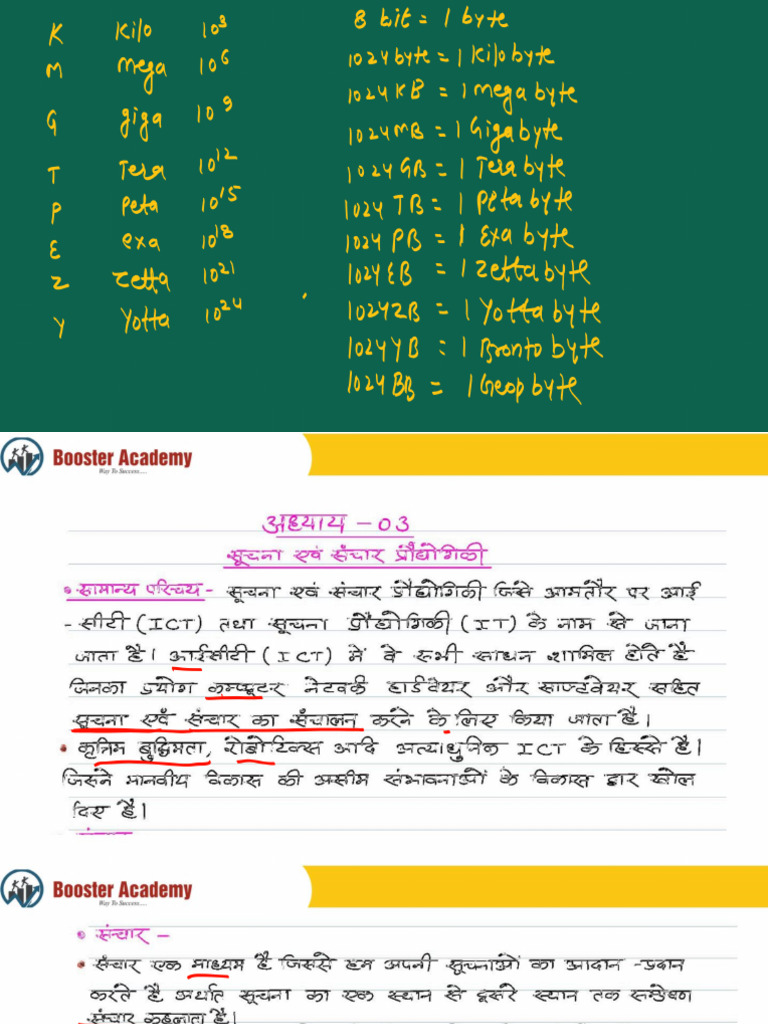 K Kilo 10³
M mega 10⁶
G giga 10⁹
T Tera 10¹²
P Peta 10¹⁵
E exa 10¹⁸
Z zetta 10²¹
Y Yotta 10²⁴
8 bit = 1 byte
1024 byte = 1 Kilobyte
1024 KB = 1 mega byte
1024 MB = 1 Giga byte
1024 GB = 1 Tera byte
1024 TB = 1 Peta byte
1024 PB = 1 Exa byte
1024 EB = 1 Zetta byte
1024 ZB = 1 Yotta byte
1024 YB = 1 Bronto byte
1024 BB = 1 Geop byte
Booster Academy
Way To Success....
अध्याय - 03
सूचना एवं संचार प्रौद्योगिकी
सामान्य परिचय - सूचना एवं संचार प्रौद्योगिकी जिसे आमतौर पर आई
- सीटी (ICT) तथा सूचना प्रौद्योगिकी (IT) के नाम से जाना
जाता है। आईसीटी (ICT) में वे सभी साधन शामिल होते है
जिनका प्रयोग कम्प्यूटर नेटवर्क हार्डवेयर और साफ्टवेयर सहित
सूचना एवँ संचार का संचालन करने के लिए किया जाता है।
कृत्रिम बुद्धिमता, रोबोटिक्स आदि अत्याधुनिक ICT के हिस्से है।
जिसने मानवीय विकास की असीम संभावनाओं के विकास द्वार खोल
दिए है।
Booster Academy
Way To Success....
संचार -
संचार एक माध्यम है जिससे हम अपनी सूचनाओं का आदान-प्रदान
करते है अर्थात सूचना का एक स्थान से दूसरे स्थान तक सम्प्रेषण
संचार कहलाता है।